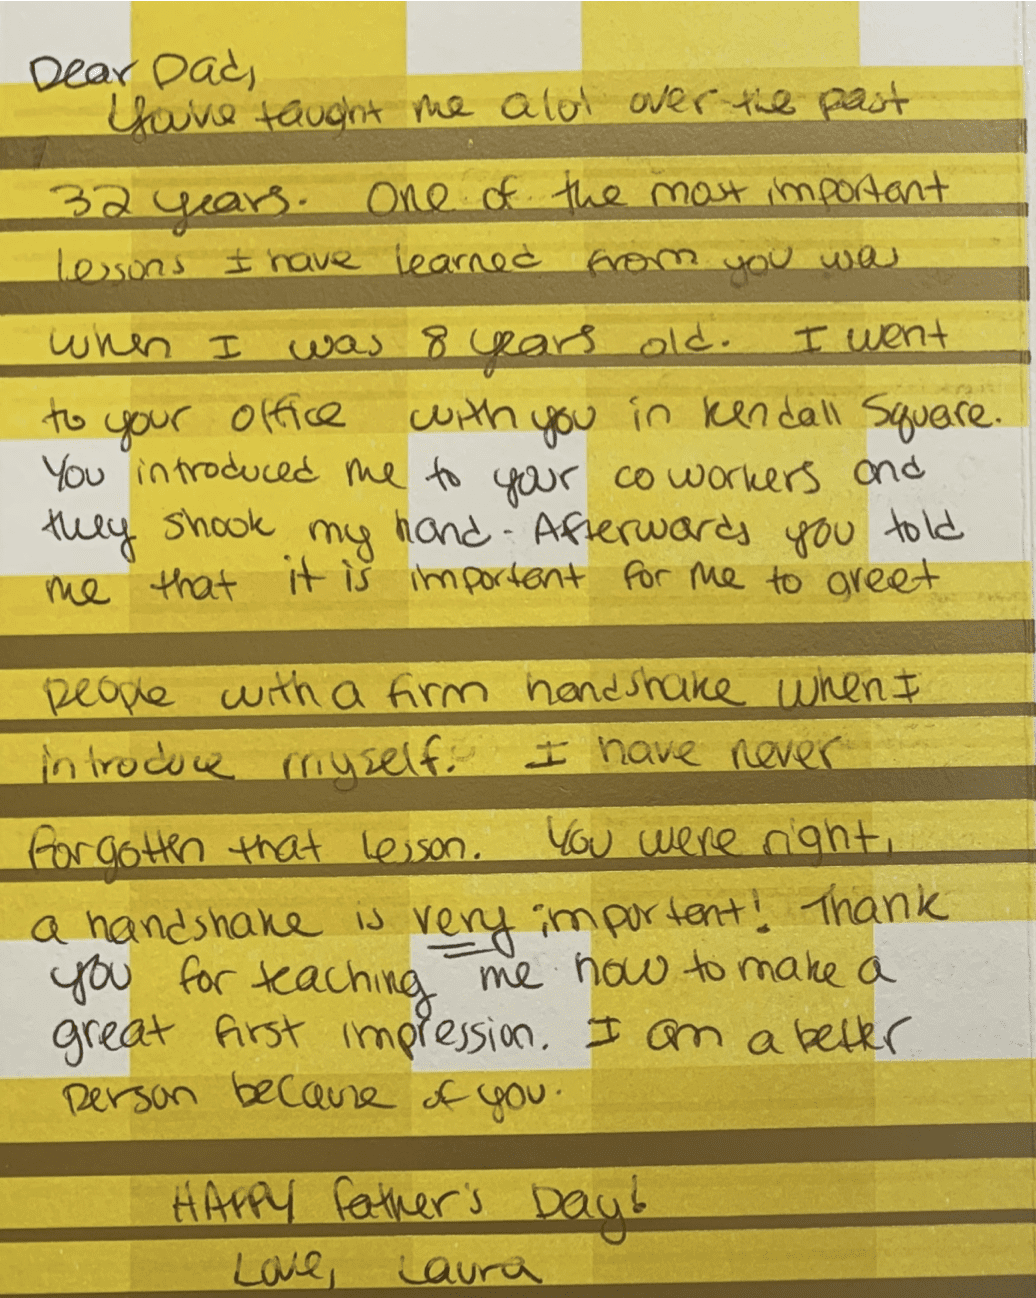 Dear Dad,
You've taught me alot over the past
32 years. One of the most important
lessons I have learned from you was
when I was 8 years old. I went
to your office with you in Kendall Square.
You introduced me to your coworkers and
they shook my hand. Afterwards you told
me that it is important for me to greet
people with a firm handshake when I
introduce myself. I have never
forgotten that lesson. You were right,
a handshake is very important! Thank
you for teaching me how to make a
great first impression. I am a better
person because of you.
HAPPY Father's Day!
Love, Laura